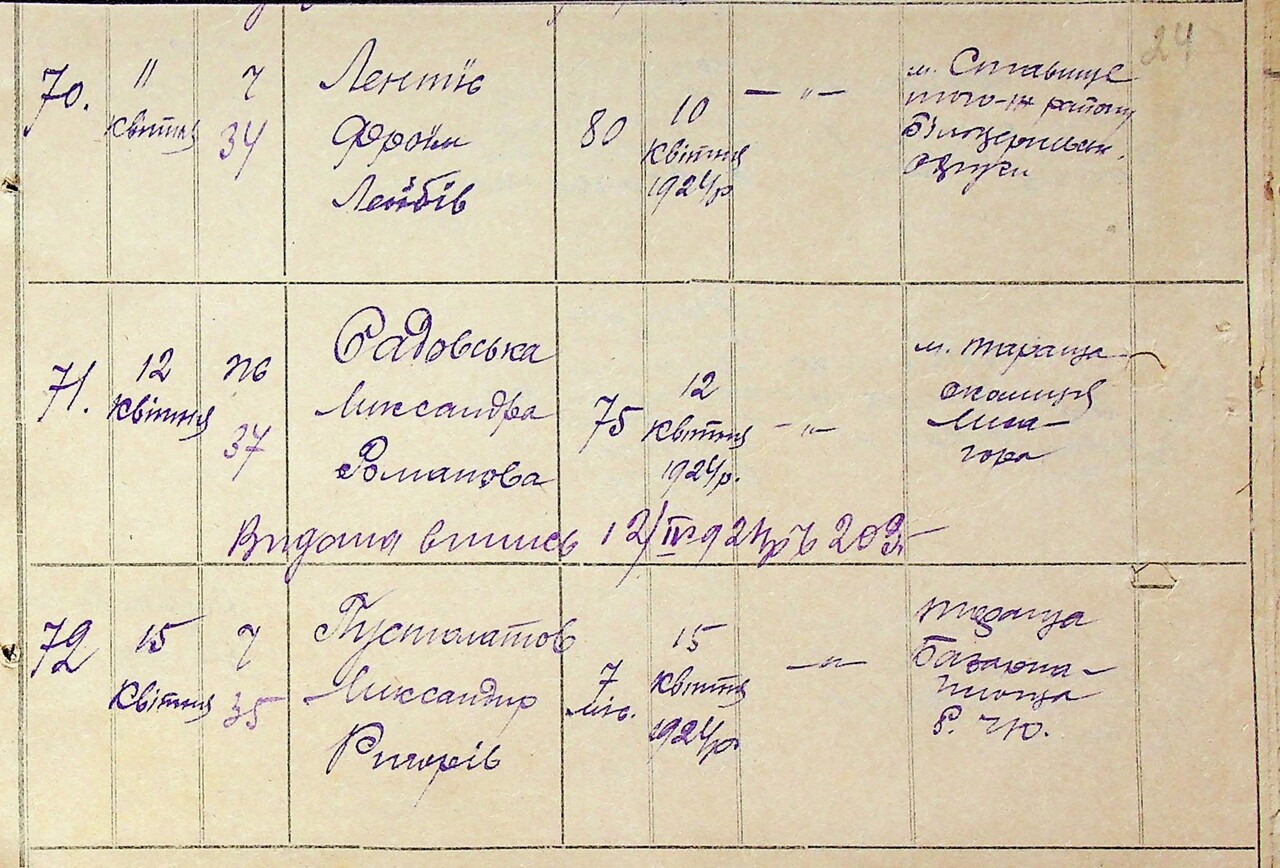 24
70.
11
квітня
ч
34
Лентіс
Фроїм
Лейбів
80
10
квітня
1924р
— " —
м. Ставище
того-ж району
Білоцерківськ.
округи
71.
12
квітня
37
Садовська
Лександра
Романова
75
12
квітня
1924р.
— " —
м. Тараща
околиця
Лиса-
гора
Видана випись 12/IV 924р
72
15
квітня
ч
35
Пустолатов
Лександр
Григорів
7
міс.
15
квітня
1924р
— " —
Тараща
Базарна-
площа